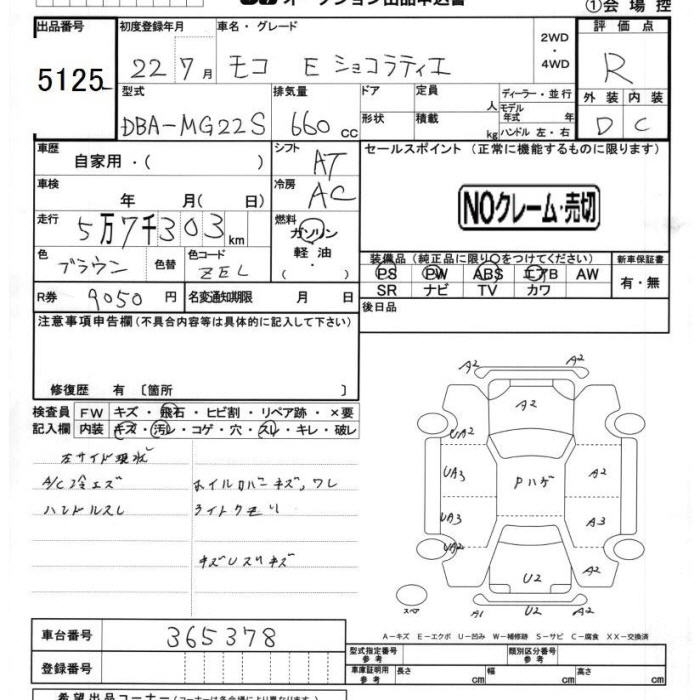 オークション出品申込書
①会場控
出品番号
5125
初度登録年月
22 7月
車名・グレード
モコ E ショコラティエ
2WD
・
4WD
評価点
R
外装 内装
D C
型式
DBA-MG22S
排気量
660 cc
ドア
形状
定員
人
積載
kg
ディーラー・並行
モデル
年式 年
ハンドル 左・右
車歴
自家用・( )
シフト
AT
車検
年 月( 日)
冷房
AC
走行
5万7千303km
燃料
ガソリン
軽油
・( )
色
ブラウン
色替
色コード
ZEL
R券 9050 円
名変通知期限 月 日
セールスポイント (正常に機能するものに限ります)
NOクレーム・売切
装備品 (純正品に限り○をつけてください)
新車保証書
PS PW ABS エアB AW
有・無
SR ナビ TV カワ
後日品
注意事項申告欄(不具合内容等は具体的に記入して下さい)
修復歴 有 〔箇所 〕
検査員
記入欄
FW キズ・飛石・ヒビ割・リペア跡・×要
内装 キズ・汚レ・コゲ・穴・スレ・キレ・破レ
左サイド現状
A/C冷エズ
ハンドルスレ
ホイルカバーキズ、ワレ
ライトクモリ
キズUスリキズ
A2 A2
A2
UA2
UA3
Pハゲ
A2
UA3
A3
UA2
A2
U2
スペア
A1 U2 A2
A－キズ E－エクボ U－凹み W－補修跡 S－サビ C－腐食 XX－交換済
車台番号
365378
登録番号
型式指定番号
参考
類別区分番号
参考
車庫証明用
参考
長さ cm
幅 cm
高さ cm
希望出品コーナー